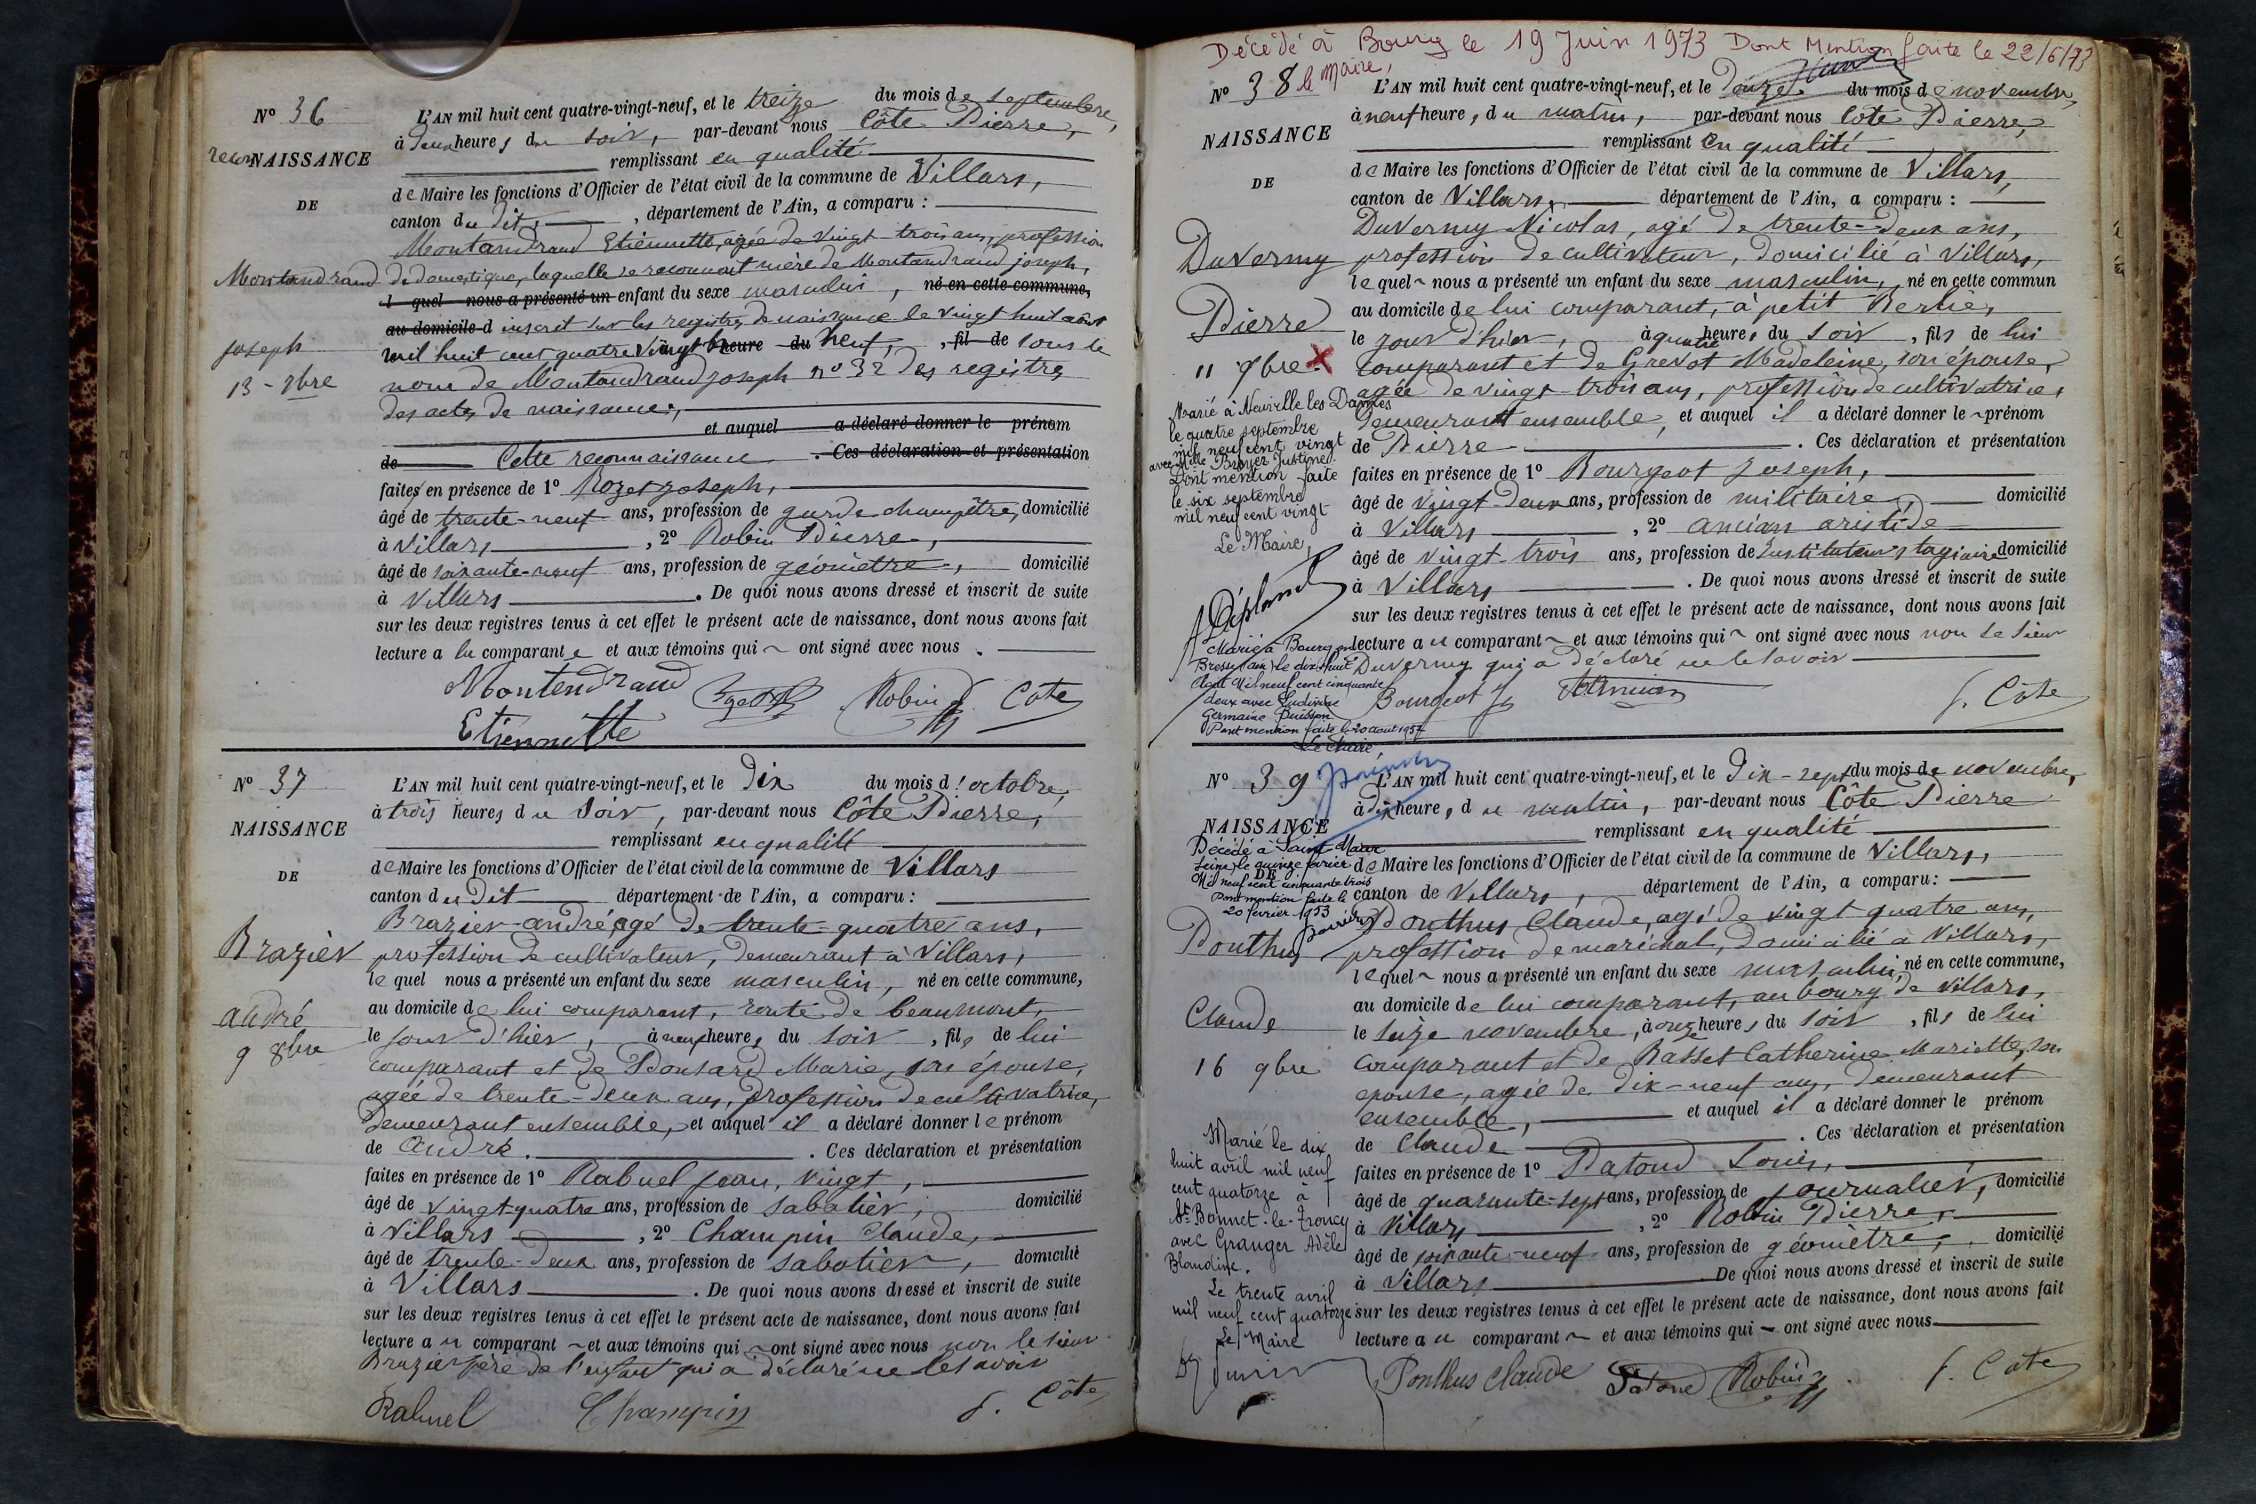 N° 36
recon NAISSANCE
DE
Montandraud
joseph
13 - 7bre
L'AN mil huit cent quatre-vingt-neuf, et le treize du mois de septembre,
à deux heures du soir, par-devant nous Côte Pierre,
remplissant en qualité
de Maire les fonctions d'Officier de l'état civil de la commune de Villars,
canton du dit, département de l'Ain, a comparu :
Montandraud Etiennette, agée de vingt-trois ans, profession
de domestique, laquelle se reconnait mère de Montandraud joseph,
l quel nous a présenté un enfant du sexe masculin, né en cette commune,
au domicile d inscrit sur les registres de naissance le vingt huit août
mil huit cent quatre vingt heure du neuf, , fil de sous le
nom de Montandraud joseph n° 32 des registres
des actes de naissance,
et auquel a déclaré donner le prénom
de Cette reconnaissance . Ces déclaration et présentation
faites en présence de 1° Rozet joseph,
âgé de trente-neuf ans, profession de garde champêtre, domicilié
à Villars , 2° Robin Pierre,
âgé de soixante-neuf ans, profession de géomètre, domicilié
à Villars . De quoi nous avons dressé et inscrit de suite
sur les deux registres tenus à cet effet le présent acte de naissance, dont nous avons fait
lecture a la comparante et aux témoins qui ont signé avec nous .
Montendraud
Etiennette
Robin Côte
N° 37
NAISSANCE
DE
Brazier
andré
9 8bre
L'AN mil huit cent quatre-vingt-neuf, et le dix du mois d'octobre,
à trois heures du soir, par-devant nous Côte Pierre,
remplissant en qualité
de Maire les fonctions d'Officier de l'état civil de la commune de Villars
canton du dit département de l'Ain, a comparu :
Brazier andré, agé de trente-quatre ans,
profession de cultivateur, demeurant à Villars,
lequel nous a présenté un enfant du sexe masculin, né en cette commune,
au domicile de lui comparant, route de beaumont,
le jour d'hier, à neuf heures du soir, fils de lui
comparant et de Ponsard Marie, son épouse,
agée de trente-deux ans, profession de cultivatrice,
demeurant ensemble, et auquel il a déclaré donner le prénom
de andré. . Ces déclaration et présentation
faites en présence de 1° Rabuel jean, vingt,
âgé de vingt-quatre ans, profession de sabotier, domicilié
à Villars , 2° Champin Claude,
âgé de trente-deux ans, profession de sabotier, domicilié
à Villars . De quoi nous avons dressé et inscrit de suite
sur les deux registres tenus à cet effet le présent acte de naissance, dont nous avons fait
lecture au comparant et aux témoins qui ont signé avec nous non le sieur
Brazier père de l'enfant qui a déclaré ne le savoir
Rabuel Champin f. Côte
Décédé à Bourg le 19 Juin 1973 Dont Mention faite le 22/6/73
le Maire,
N° 38
NAISSANCE
DE
Duverny
Pierre
11 9bre X
Marié à Neuville les Dames
le quatre septembre
mil neuf cent vingt
avec Melle Broyer Justine
Dont mention faite
le six septembre
mil neuf cent vingt
Le Maire,
Marié à Bourg en
Bresse (ain) le dix huit
Août Mil neuf cent cinquante
deux avec Ludivine
Germaine Buisson
Dont mention faite le 20 aout 1952
Le Maire,
L'AN mil huit cent quatre-vingt-neuf, et le douze du mois de novembre,
à neuf heure, du matin, par-devant nous Côte Pierre,
remplissant en qualité
de Maire les fonctions d'Officier de l'état civil de la commune de Villars,
canton de Villars, département de l'Ain, a comparu :
Duverny Nicolas, agé de trente-deux ans,
profession de cultivateur, domicilié à Villars,
lequel nous a présenté un enfant du sexe masculin, né en cette commun
au domicile de lui comparant, à petit Berlie,
le jour d'hier, à quatre heures du soir, fils de lui
comparant et de Grevot Madeleine, son épouse,
agée de vingt-trois ans, profession de cultivatrice,
demeurant ensemble, et auquel il a déclaré donner le prénom
de Pierre . Ces déclaration et présentation
faites en présence de 1° Bourgeot Joseph,
âgé de vingt-deux ans, profession de militaire, domicilié
à Villars , 2° ancian aristide
âgé de vingt-trois ans, profession de Instituteur stagiaire domicilié
à Villars . De quoi nous avons dressé et inscrit de suite
sur les deux registres tenus à cet effet le présent acte de naissance, dont nous avons fait
lecture au comparant et aux témoins qui ont signé avec nous non le sieur
Duverny qui a déclaré ne le savoir
Bourgeot J Ancian f. Côte
N° 39
NAISSANCE
DE
Décédé à Saint Maur
Seine le quinze fevrier
Mil neuf cent cinquante trois
Dont mention faite le
20 fevrier 1953
Ponthus
Claude
16 9bre
Marié le dix
huit avril mil neuf
cent quatorze à
St Bonnet-le-Troncy
avec Granger Adèle
Blandine.
Le trente avril
mil neuf cent quatorze
Le Maire
L'AN mil huit cent quatre-vingt-neuf, et le dix-sept du mois de novembre,
à dix heure, du matin, par-devant nous Côte Pierre
remplissant en qualité
de Maire les fonctions d'Officier de l'état civil de la commune de Villars,
canton de Villars, département de l'Ain, a comparu :
Ponthus Claude, agé de vingt quatre ans,
profession de maréchal, domicilié à Villars,
lequel nous a présenté un enfant du sexe masculin, né en cette commune,
au domicile de lui comparant, au bourg de Villars,
le seize novembre, à onze heures du soir, fils de lui
comparant et de Basset Catherine Mariette, son
epouse, agée de dix-neuf ans, demeurant
ensemble, et auquel il a déclaré donner le prénom
de Claude . Ces déclaration et présentation
faites en présence de 1° Patoud Louis,
âgé de quarante-sept ans, profession de journalier, domicilié
à Villars , 2° Robin Pierre,
âgé de soixante-neuf ans, profession de géomètre, domicilié
à Villars De quoi nous avons dressé et inscrit de suite
sur les deux registres tenus à cet effet le présent acte de naissance, dont nous avons fait
lecture au comparant et aux témoins qui ont signé avec nous
Ponthus Claude Patoud Robin f. Côte